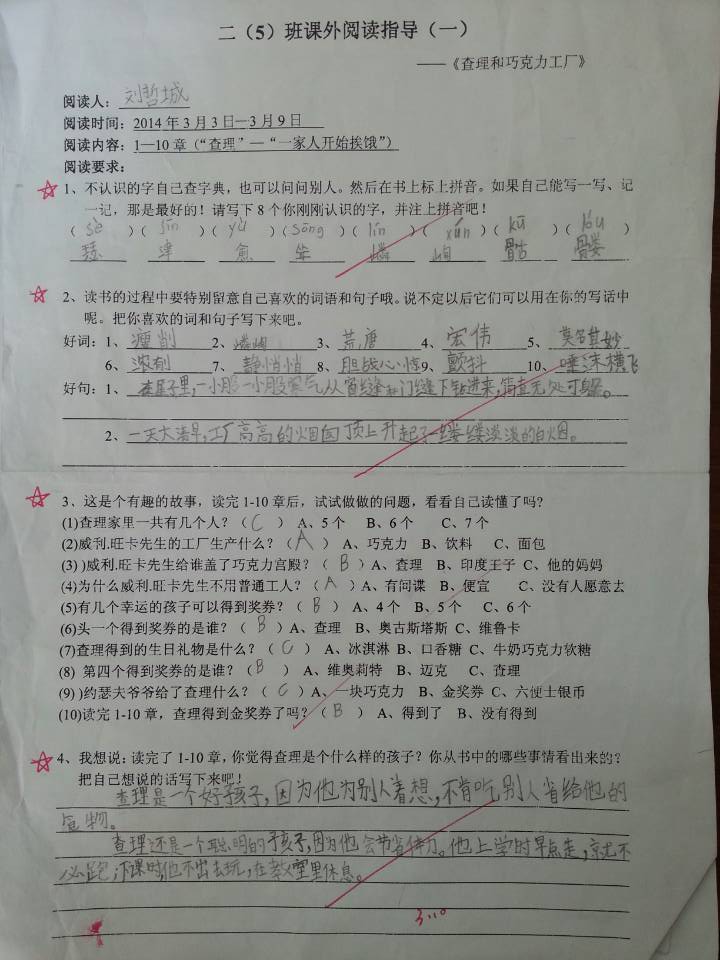 二（5）班课外阅读指导（一）
——《查理和巧克力工厂》
阅读人：刘哲城
阅读时间：2014年3月3日—3月9日
阅读内容：1—10章（“查理”—“一家人开始挨饿”）
阅读要求：
1、不认识的字自己查字典，也可以问问别人。然后在书上标上拼音。如果自己能写一写、记
一记，那是最好的！请写下8个你刚刚认识的字，并注上拼音吧！
（sè）（jīn）（yù）（sǒng）（lín）（xún）（kū）（lóu）
瑟 津 愈 耸 嶙 峋 骷 髅
2、读书的过程中要特别留意自己喜欢的词语和句子哦。说不定以后它们可以用在你的写话中
呢。把你喜欢的词和句子写下来吧。
好词：1、瘦削 2、嶙峋 3、荒唐 4、宏伟 5、莫名其妙
6、浓郁 7、静悄悄 8、胆战心惊 9、颤抖 10、唾沫横飞
好句：1、在屋子里，一小股一小股寒气从窗缝和门缝下钻进来，简直无处可躲。
2、一天大清早，工厂高高的烟囱顶上升起了一缕缕淡淡的白烟。
3、这是个有趣的故事，读完1-10章后，试试做做的问题，看看自己读懂了吗？
(1)查理家里一共有几个人？（C） A、5个 B、6个 C、7个
(2)威利.旺卡先生的工厂生产什么？（A） A、巧克力 B、饮料 C、面包
(3) )威利.旺卡先生给谁盖了巧克力宫殿？（B）A、查理 B、印度王子 C、他的妈妈
(4)为什么威利.旺卡先生不用普通工人？（A）A、有间谍 B、便宜 C、没有人愿意去
(5)有几个幸运的孩子可以得到奖券？（B） A、4个 B、5个 C、6个
(6)头一个得到奖券的是谁？（B）A、查理 B、奥古斯塔斯 C、维鲁卡
(7)查理得到的生日礼物是什么？（C） A、冰淇淋 B、口香糖 C、牛奶巧克力软糖
(8) 第四个得到奖券的是谁？（B） A、维奥莉特 B、迈克 C、查理
(9) )约瑟夫爷爷给了查理什么？（C）A、一块巧克力 B、金奖券 C、六便士银币
(10)读完1-10章，查理得到金奖券了吗？（B） A、得到了 B、没有得到
4、我想说：读完了1-10章，你觉得查理是个什么样的孩子？你从书中的哪些事情看出来的？
把自己想说的话写下来吧！
查理是一个好孩子，因为他为别人着想，不肯吃别人省给他的
食物。
查理还是一个聪明的孩子，因为他会节省体力。他上学时早点走，就不
必跑，下课时，他不出去玩，在教室里休息。
3.10